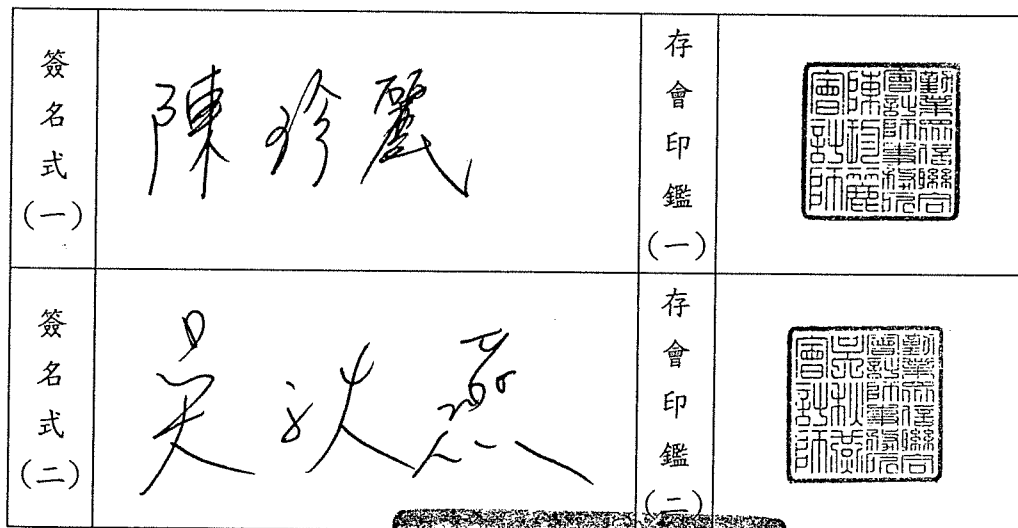 簽名式(一)
陳珍麗
存會印鑑(一)
勤業眾信聯合
會計師事務所
陳珍麗
會計師
簽名式(二)
吳秋燕
存會印鑑(二)
勤業眾信聯合
會計師事務所
吳秋燕
會計師